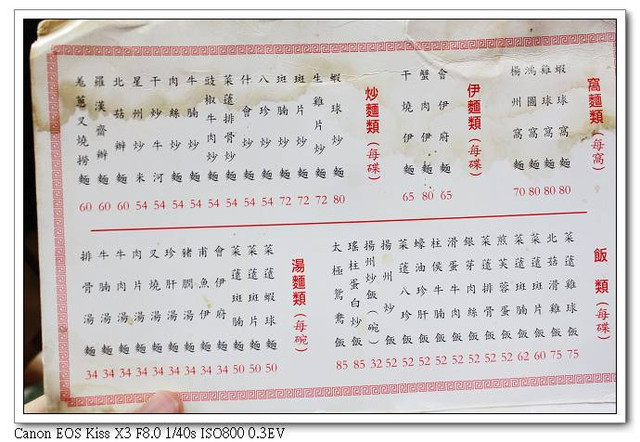 窩麵類(每窩)
蝦球窩麵 80
雞球窩麵 80
鴻圖窩麵 80
楊州窩麵 70
伊麵類(每碟)
會伊府麵 65
蟹肉伊麵 80
干燒伊麵 65
炒麵類(每碟)
蝦球炒麵 80
生雞片炒麵 72
斑片炒麵 72
斑腩炒麵 72
八珍炒麵 54
什會炒麵 54
菜薳排骨炒麵 54
豉椒牛肉炒麵 54
牛腩炒麵 54
肉絲炒麵 54
干炒牛河 54
星州炒米 54
北菇辦麵 60
羅漢齋辦麵 60
羗蔥叉燒撈麵 60
飯類(每碟)
菜薳蝦球飯 75
北菇滑雞飯 75
菜薳斑片飯 60
菜薳斑腩飯 62
煎芙蓉蛋飯 52
菜薳排骨飯 52
銀芽肉絲飯 52
滑蛋牛肉飯 52
柱侯牛腩飯 52
蠔油珍肝飯 52
菜薳八珍飯 52
揚州炒飯 52
揚州炒飯(一碗) 32
瑤柱蛋白炒飯 85
太極鴛鴦飯 85
湯麵類(每碗)
菜薳蝦球麵 50
菜薳斑片麵 50
菜薳斑腩麵 50
會伊府麵 34
甫魚伊麵 34
豬膶湯麵 34
珍肝湯麵 34
叉燒湯麵 34
肉片湯麵 34
牛肉湯麵 34
牛腩湯麵 34
排骨湯麵 34
Canon EOS Kiss X3 F8.0 1/40s ISO800 0.3EV